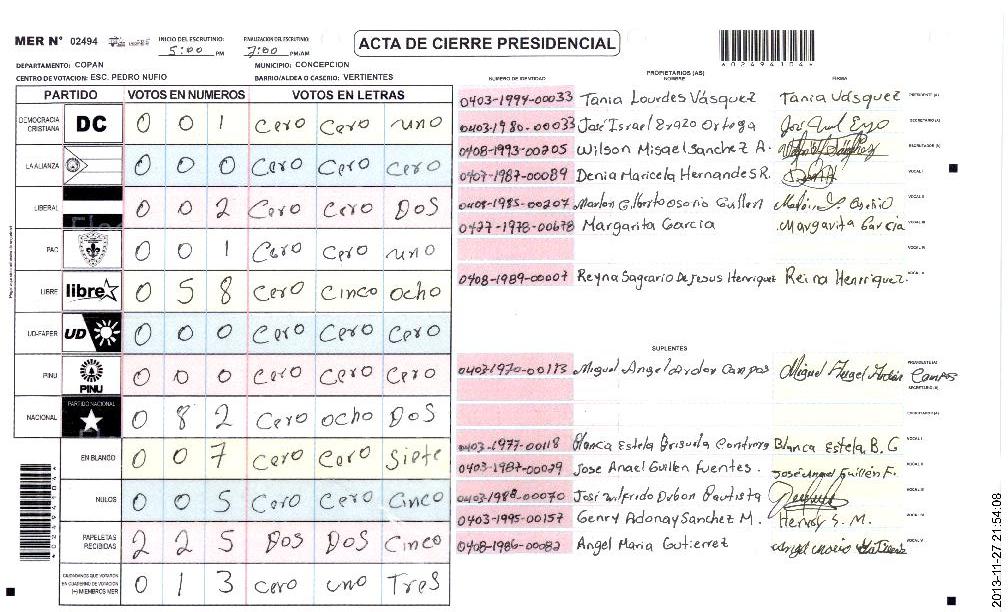 MER N° 02494 INICIO DEL ESCRUTINIO: 5:00 PM FINALIZACION DEL ESCRUTINIO: 7:00 PM/AM ACTA DE CIERRE PRESIDENCIAL
DEPARTAMENTO: COPAN MUNICIPIO: CONCEPCION
CENTRO DE VOTACION: ESC. PEDRO NUFIO BARRIO/ALDEA O CASERIO: VERTIENTES
PARTIDO VOTOS EN NUMEROS VOTOS EN LETRAS
DEMOCRACIA CRISTIANA DC 0 0 1 Cero Cero uno
LA ALIANZA 0 0 0 Cero Cero Cero
LIBERAL 0 0 2 Cero Cero DOS
PAC 0 0 1 Cero Cero uno
LIBRE libre 0 5 8 Cero Cinco Ocho
UD-FAPER UD 0 0 0 Cero Cero Cero
PINU PINU 0 0 0 Cero Cero Cero
NACIONAL PARTIDO NACIONAL 0 8 2 Cero Ocho DOS
EN BLANCO 0 0 7 Cero Cero Siete
NULOS 0 0 5 Cero Cero Cinco
PAPELETAS RECIBIDAS 2 2 5 DOS DOS Cinco
CIUDADANOS QUE VOTARON EN CUADERNO DE VOTACION (+) MIEMBROS MER 0 1 3 Cero uno Tres
PROPIETARIOS (AS)
NUMERO DE IDENTIDAD NOMBRE FIRMA
0403-1994-00033 Tania Lourdes Vásquez Tania Vásquez PRESIDENTE (A)
0403-1980-00033 José Israel Erazo Ortega SECRETARIO (A)
0408-1993-00205 Wilson Misael Sanchez A. ESCRUTADOR (A)
0407-1987-00089 Denia Maricela Hernandes R. VOCAL I
0408-1985-00207 Marlon Gilberto Osorio Guillen VOCAL II
0427-1978-00678 Margarita Garcia Margarita Garcia VOCAL III
VOCAL IV
0408-1989-00007 Reyna Sagrario De Jesus Henriquez Reina Henrriquez. VOCAL V
SUPLENTES
0402-1970-00113 Miguel Angel Ardon Campos Miguel Angel Ardón Campos PRESIDENTE (A)
SECRETARIO (A)
ESCRUTADOR (A)
0403-1977-00118 Blanca Estela Brisuela Contreras Blanca Estela B. C VOCAL I
0403-1987-00029 Jose Anael Guillen Fuentes. José Angel Guillén F. VOCAL II
0403-1988-00070 José Wilfrido Dubon Bautista VOCAL III
0403-1995-00157 Genry Adonay Sanchez M. Henry S. M. VOCAL IV
0408-1986-00082 Angel Maria Gutierrez VOCAL V
2013-11-27 21:54:08